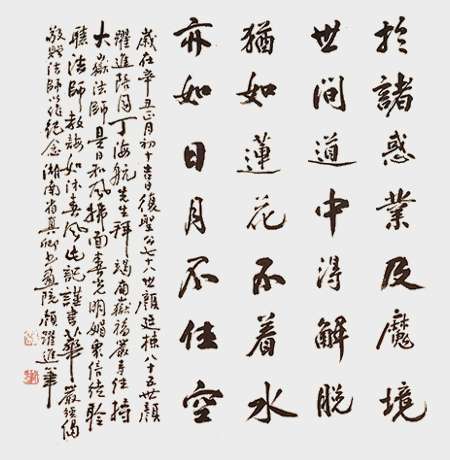 於諸惑業及魔境
世間道中得解脱
猶如蓮花不着水
亦如日月不住空
歲在辛丑正月初十吉日復聖公七十八世顏廷八十五世顏
躍進陪同丁海航先生拜謁南嶽福嚴寺住持
大嶽法師是日和風拂面春光明媚衆信徒聆
聽法師教誨如沐春風此記謹書華嚴經偈
敬贈法師以作紀念湖南省真卿書畫院顏躍進筆